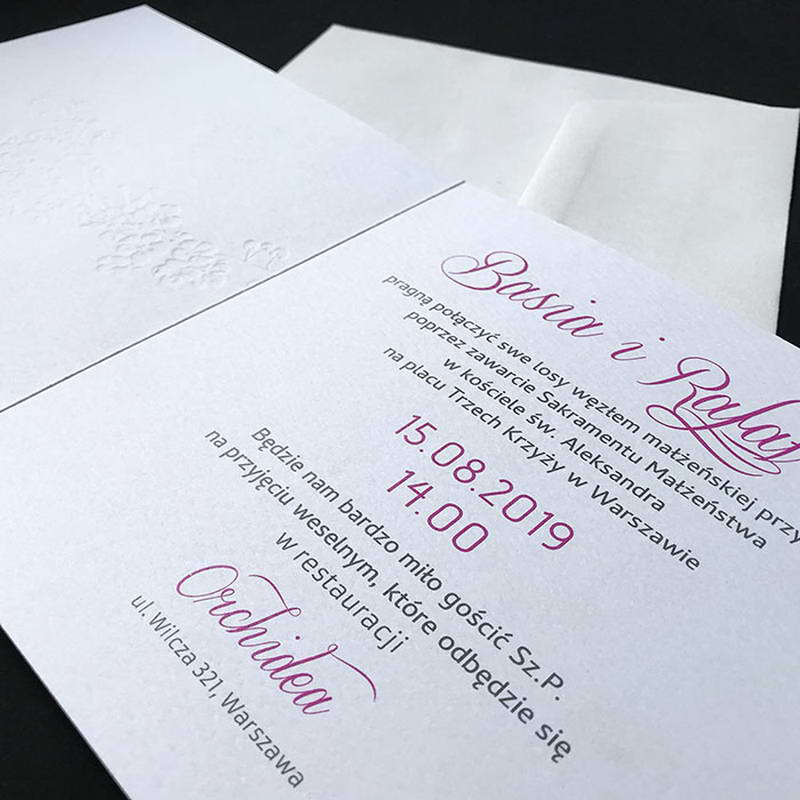 Basia i Rafał
pragną połączyć swe losy węzłem małżeńskiej przy
poprzez zawarcie Sakramentu Małżeństwa
w kościele św. Aleksandra
na placu Trzech Krzyży w Warszawie
15.08.2019
14.00
Będzie nam bardzo miło gościć Sz.P.
na przyjęciu weselnym, które odbędzie się
w restauracji
Orchidea
ul. Wilcza 321, Warszawa